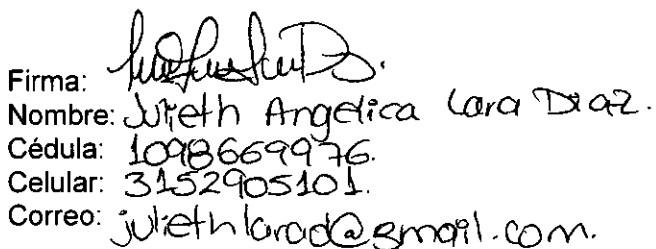 Firma:
Nombre: Julieth Angelica Lara Diaz.
Cédula: 1098669976.
Celular: 3152905101.
Correo: juliethlarad@gmail.com.